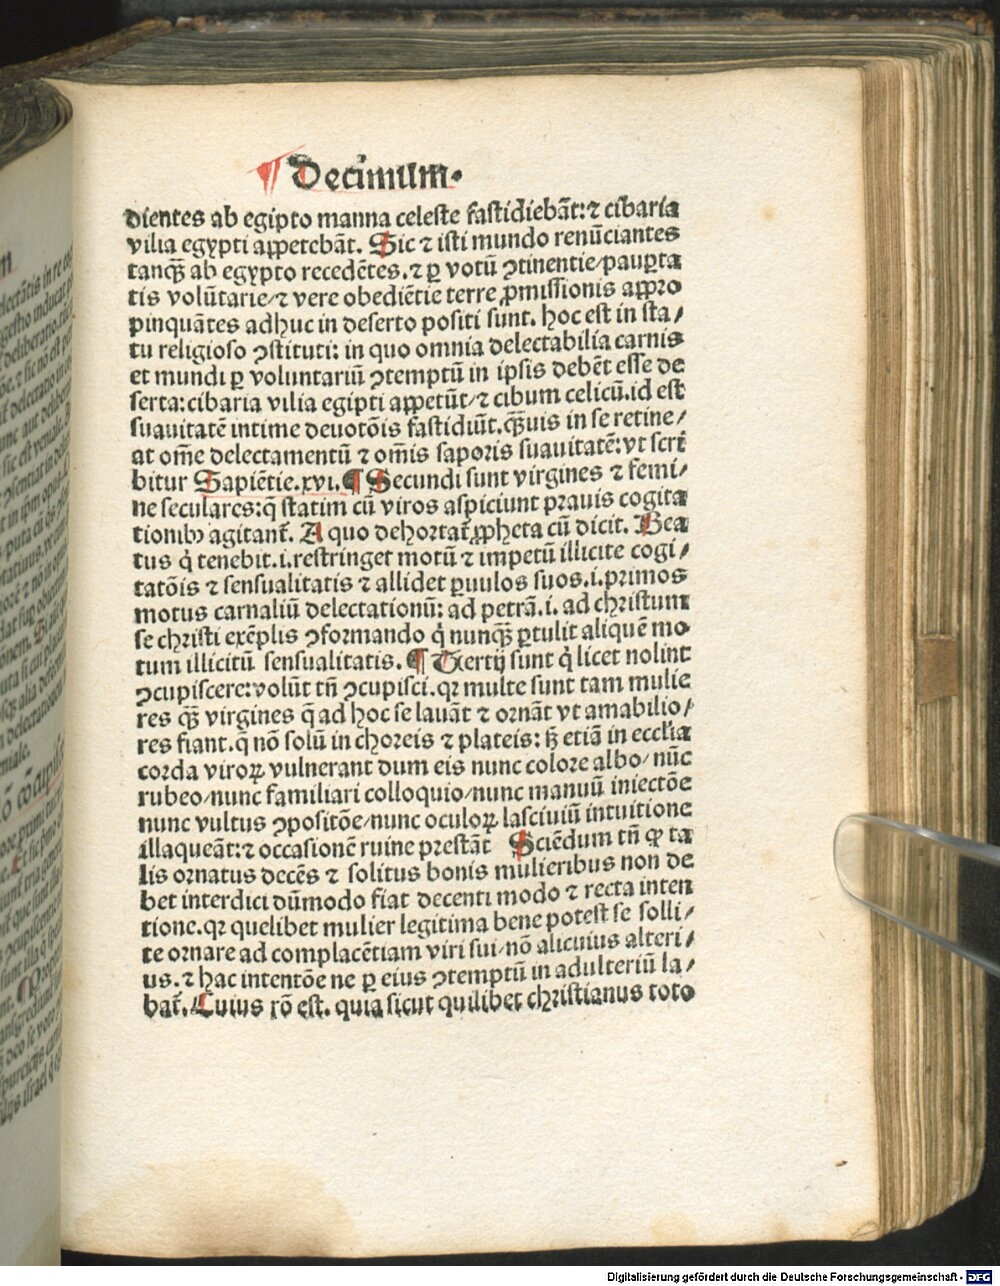 ¶ Decimum.
dientes ab egipto manna celeste fastidiebāt: ⁊ cibaria
vilia egypti appetebāt. Sic ⁊ isti mundo renūciantes
tanqꝫ ab egypto recedētes. ⁊ ꝑ votū ꝯtinentie/ pauꝑta
tis volūtarie/ ⁊ vere obediētie terre ꝓmissionis appro
pinquātes adhuc in deserto positi sunt. hoc est in sta/
tu religioso ꝯstituti: in quo omnia delectabilia carnis
et mundi ꝑ voluntariū ꝯtemptū in ipsis debēt esse de
serta: cibaria vilia egipti appetūt/ ⁊ cibum celicū. id est
suauitatē intime deuotōis fastidiūt. qꝫuis in se retine/
at om̄e delectamentū ⁊ om̄is saporis suauitatē: vt scri
bitur Sapiētie. xvi. ¶ Secundi sunt virgines ⁊ femi/
ne seculares: q̄ statim cū viros aspiciunt prauis cogita
tionibꝰ agitant᷑. A quo dehortat᷑ ꝓpheta cū dicit. Bea
tus q̇ tenebit. i. restringet motū ⁊ impetū illicite cogi/
tatōis ⁊ sensualitatis ⁊ allidet ꝑuulos suos. i. primos
motus carnaliū delectationū: ad petrā. i. ad christum
se christi exēplis ꝯformando q̇ nunqꝫ ꝑtulit aliquē mo
tum illicitū sensualitatis. ¶ Tertij sunt q̇ licet nolint
ꝯcupiscere: volūt tn̄ ꝯcupisci. qꝛ multe sunt tam mulie
res qꝫ virgines q̄ ad hoc se lauāt ⁊ ornāt vt amabilio/
res fiant. q̄ nō solū in choreis ⁊ plateis: sꝫ etiā in eccl̄ia
corda viroꝝ vulnerant dum eis nunc colore albo/ nūc
rubeo/ nunc familiari colloquio/ nunc manuū iniectōe
nunc vultus ꝯpositōe/ nunc oculoꝝ lasciuiū intuitione
illaqueāt: ⁊ occasionē ruine prestāt Sciēdum tn̄ ꝙ ta
lis ornatus decēs ⁊ solitus bonis mulieribus non de
bet interdici dūmodo fiat decenti modo ⁊ recta inten
tione. qꝛ quelibet mulier legitima bene potest se solli/
te ornare ad complacētiam viri sui/ nō alicuius alteri/
us. ⁊ hac intentōe ne ꝑ eius ꝯtemptū in adulteriū la/
bat᷑. Cuius rō est. quia sicut quilibet christianus toto
Digitalisierung gefördert durch die Deutsche Forschungsgemeinschaft - DFG